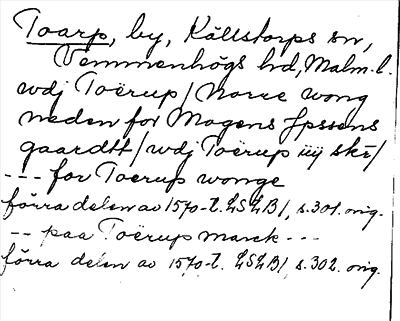 Toarp, by, Källstorps sn,
Vemmenhögs hd, Malm. l.
wdj Toërup / Norre wong
neden for Mogens Jpsens
gaardtt / wdj Toërup iiij sk /
--- for Toerup wonge
förra delen av 1570-t. LSLB /, s. 301. orig.
-- paa Toërup marck ---
förra delen av 1570-t. LSLB /, s. 302. orig.